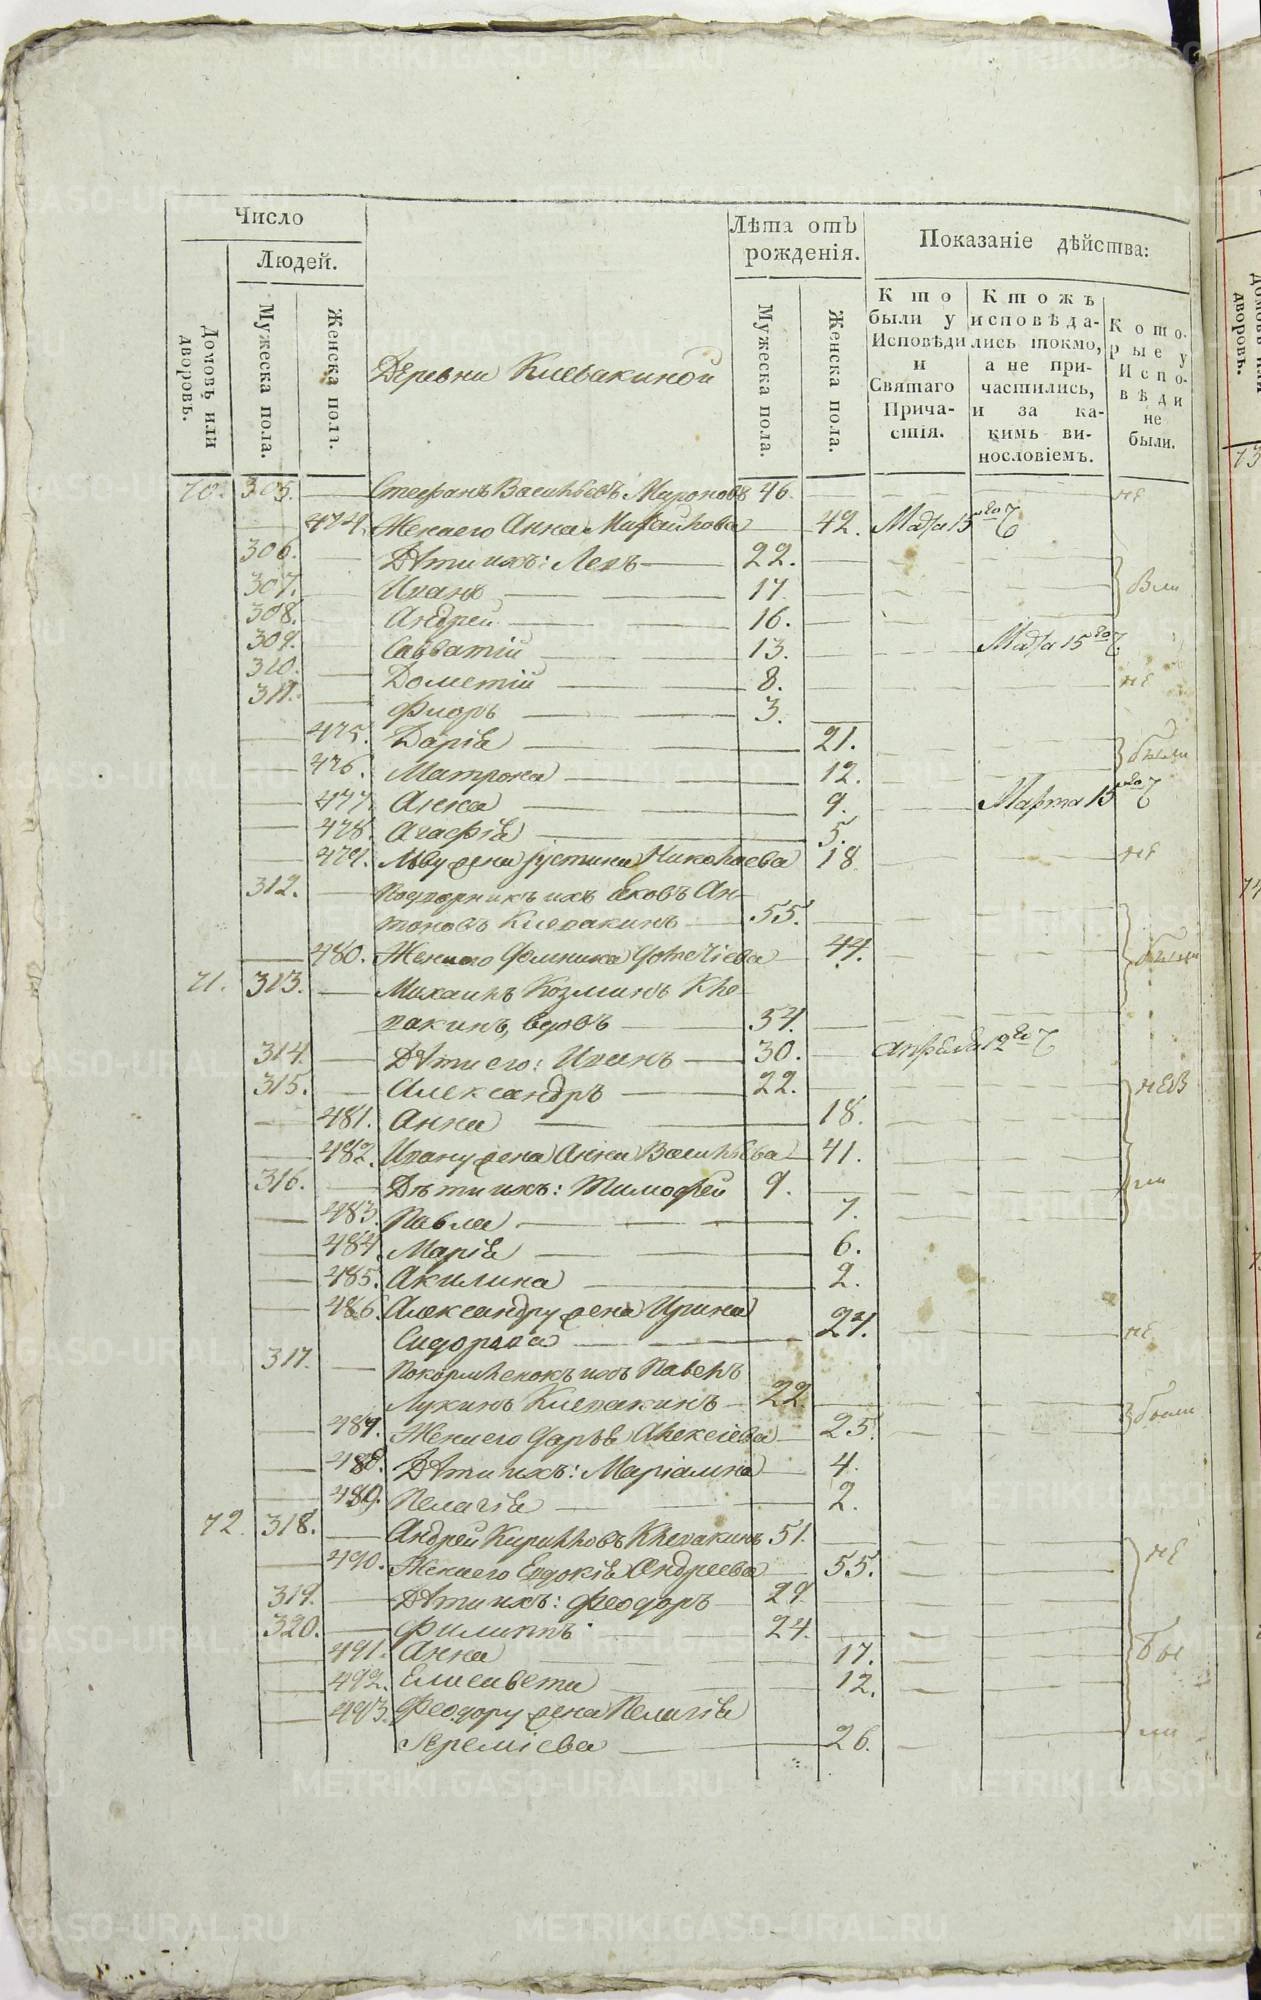 Число
Людей.
Домовъ или дворовъ.
Мужеска пола.
Женска пола.
Лѣта отъ рожденія.
Мужеска пола.
Женска пола.
Показаніе дѣйства:
Кто были у Исповѣди и Святаго Причастія.
Ктожъ исповѣдались токмо, а не причастились, и за какимъ винословіемъ.
Которые у Исповѣди не были.
Деревни Клевакиной
70. 305. Стефанъ Васильевъ Мироновъ 46. не
474. Жена его Анна Михайлова 42. Марта 15
306. Дѣти ихъ: Левъ 22.
307. Иванъ 17 бы
308. Андрей 16.
309. Савватій 13. Марта 15
310. Дометій 8. не
311. Флоръ 3.
475. Дарія 21.
476. Матрона 12. были
477. Анна 9. Марта 15
478. Агафія 5.
479. Льву жена Іустина Николаева 18 не
312. Подворникъ ихъ Яковъ Ан-
тоновъ Клевакинъ 55.
480. Жена его Домника Дометіева 44. были
71. 313. Михаилъ Козминъ Кле-
вакинъ, вдовъ 54.
314. Дѣти его: Иванъ 30. Апрѣля 12
315. Александръ 22. неб
481. Анна 18.
482. Ивану жена Анна Васильева 41.
316. Дѣти ихъ: Тимофей 9. ли
483. Павла 7.
484. Марія 6.
485. Акилина 2.
486. Александру жена Ирина
Сидорова 27. не
317. Покормленокъ ихъ Павелъ
Лукинъ Клевакинъ 22.
487. Жена его Дарья Алексіева 25. были
488. Дѣти ихъ: Маріамна 4.
489. Пелагія 2.
72. 318. Андрей Кириловъ Клевакинъ 51.
490. Жена его Евдокія Андреева 55. не
319. Дѣти ихъ: Феодоръ 29.
320. Филиппъ 24.
491. Анна 17. бы
492. Елисавета 12.
493. Феодору жена Пелагія
Іереміева 26. ли
METRIKI.GASO-URAL.RU